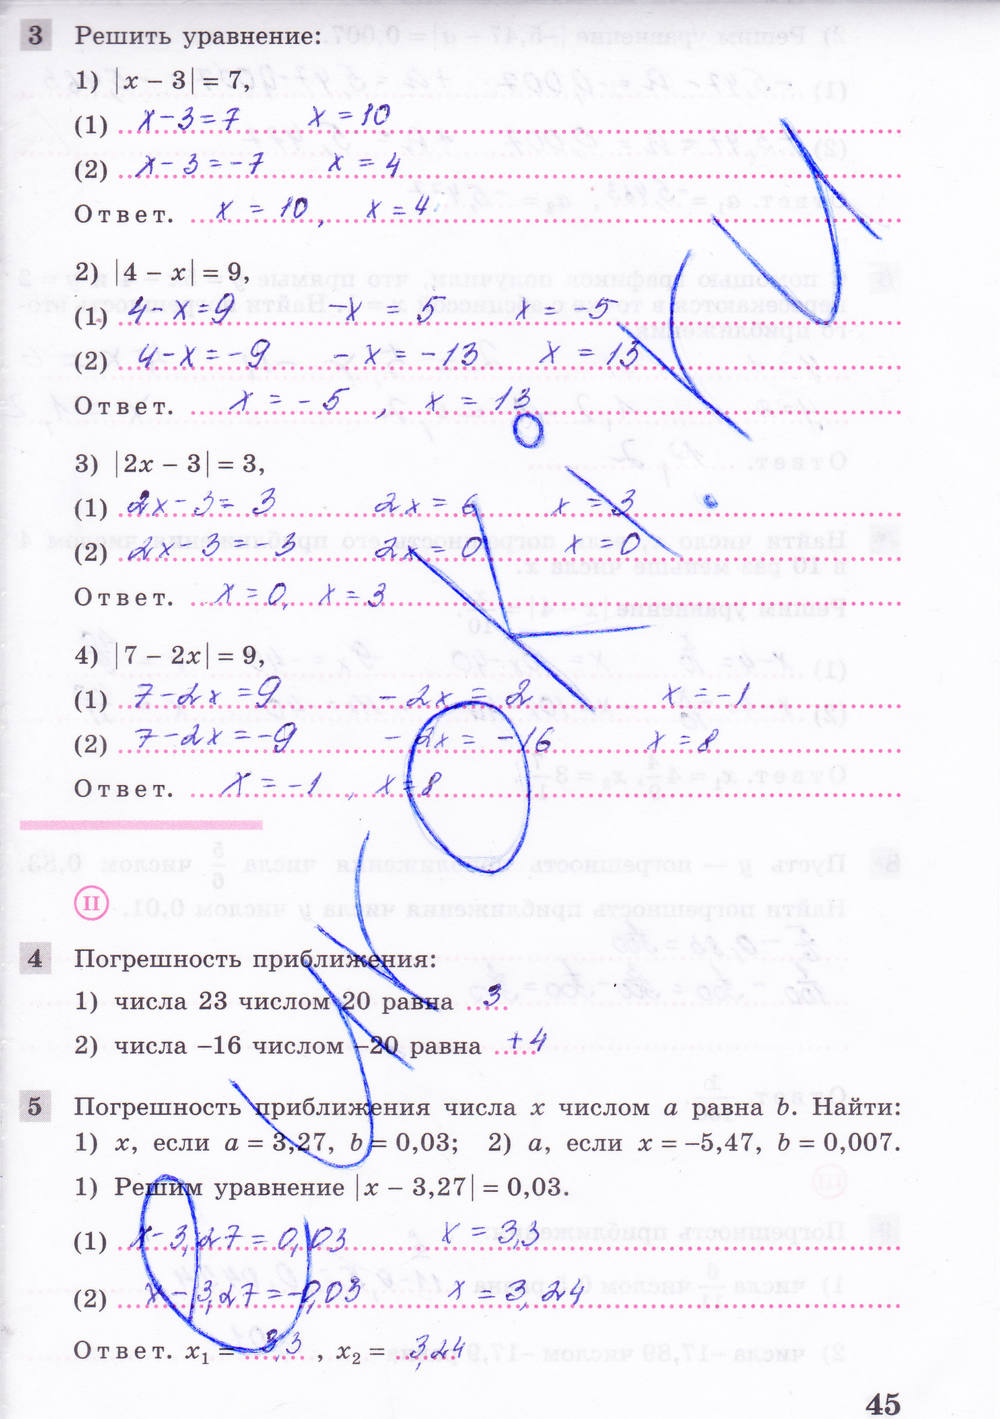 3 Решить уравнение:
1) |x − 3| = 7,
(1) x − 3 = 7 x = 10
(2) x − 3 = −7 x = 4
Ответ. x = 10, x = 4.
2) |4 − x| = 9,
(1) 4 − x = 9 −x = 5 x = −5
(2) 4 − x = −9 −x = −13 x = 13
Ответ. x = −5, x = 13
3) |2x − 3| = 3,
(1) 2x − 3 = 3 2x = 6 x = 3
(2) 2x − 3 = −3 2x = 0 x = 0
Ответ. x = 0, x = 3
4) |7 − 2x| = 9,
(1) 7 − 2x = 9 −2x = 2 x = −1
(2) 7 − 2x = −9 −2x = −16 x = 8
Ответ. x = −1, x = 8
II
4 Погрешность приближения:
1) числа 23 числом 20 равна 3
2) числа −16 числом −20 равна +4
5 Погрешность приближения числа x числом a равна b. Найти:
1) x, если a = 3,27, b = 0,03; 2) a, если x = −5,47, b = 0,007.
1) Решим уравнение |x − 3,27| = 0,03.
(1) x − 3,27 = 0,03 x = 3,3
(2) x − 3,27 = −0,03 x = 3,24
Ответ. x₁ = 3,3, x₂ = 3,24
45